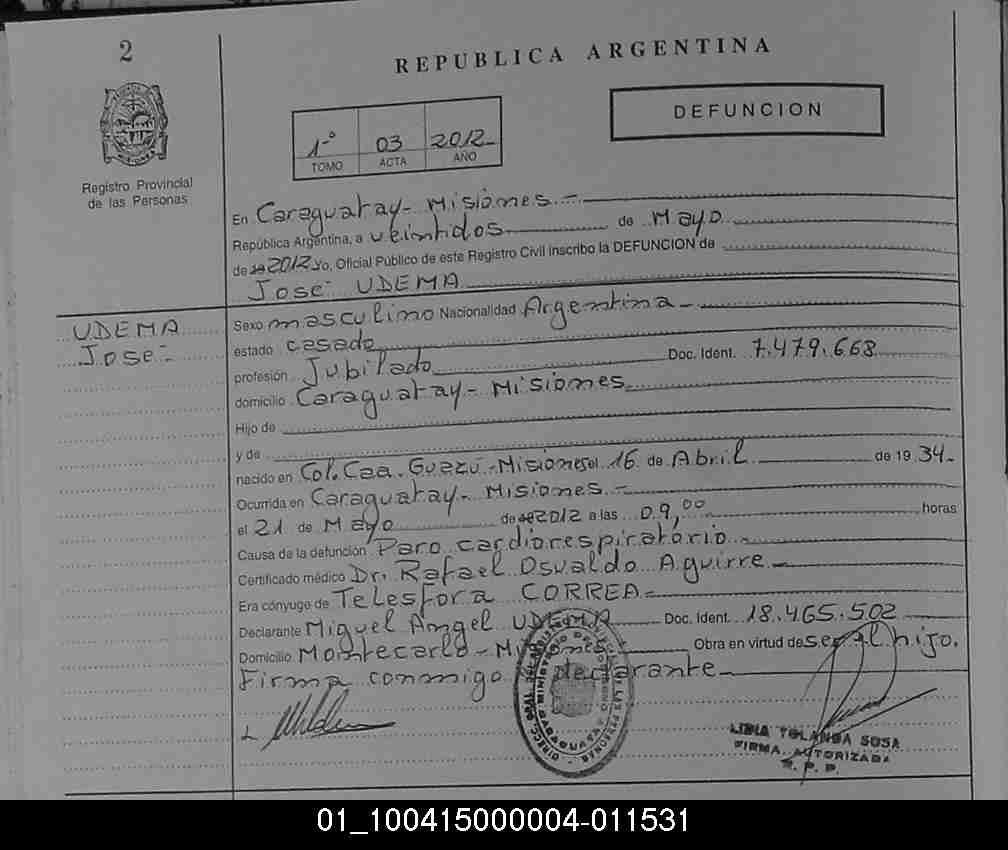 2
REPUBLICA ARGENTINA
DEFUNCION
1º 03 2012
TOMO ACTA AÑO
Registro Provincial
de las Personas
En Caraguatay - Misiones.-
República Argentina, a veintidos de Mayo
de 19 2012 Yo, Oficial Público de este Registro Civil inscribo la DEFUNCION de
José UDEMA
UDEMA
José.-
Sexo masculino Nacionalidad Argentina
estado casado
profesión Jubilado Doc. Ident. 7.479.668
domicilio Caraguatay - Misiones
Hijo de
y de
nacido en Col. Caa. Guazú - Misiones el 16 de Abril de 19 34.-
Ocurrida en Caraguatay - Misiones.-
el 21 de Mayo de 19 2012 a las 09,00 horas
Causa de la defunción Paro cardiorespiratorio.-
Certificado médico Dr. Rafael Osvaldo Aguirre
Era cónyuge de Telesfora CORREA
Declarante Miguel Angel UDEMA Doc. Ident. 18.465.502
Domicilio Montecarlo - Misiones Obra en virtud de ser el hijo.
Firma conmigo declarante
LIDIA YOLANDA SOSA
FIRMA AUTORIZADA
R. P. P.
01_100415000004-011531